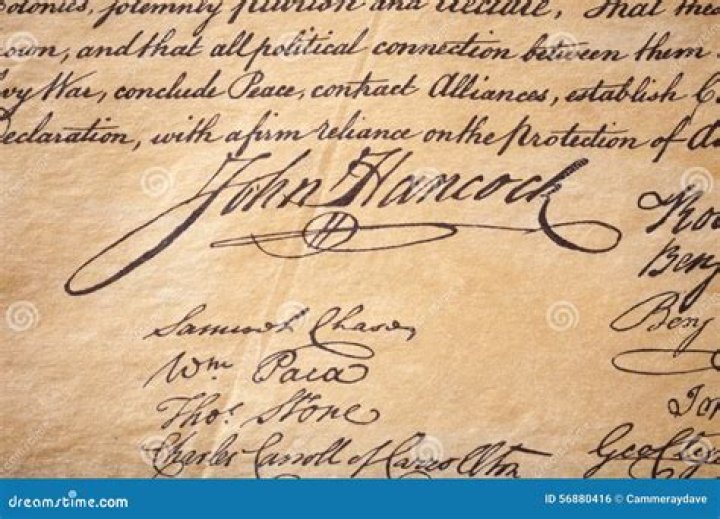 Colonies, solemnly publish and declare, That the
rown, and that all political connection between them
evy War, conclude Peace, contract Alliances, establish C
eclaration, with a firm reliance on the Protection of di
John Hancock
Samuel Chase,
Wm Paca
Thos. Stone
Charles Carroll of Carrollton
Ro
Benj
Benj
Jo
Geo Cly
dreamstime.com
ID 56880416 © Cammeraydave